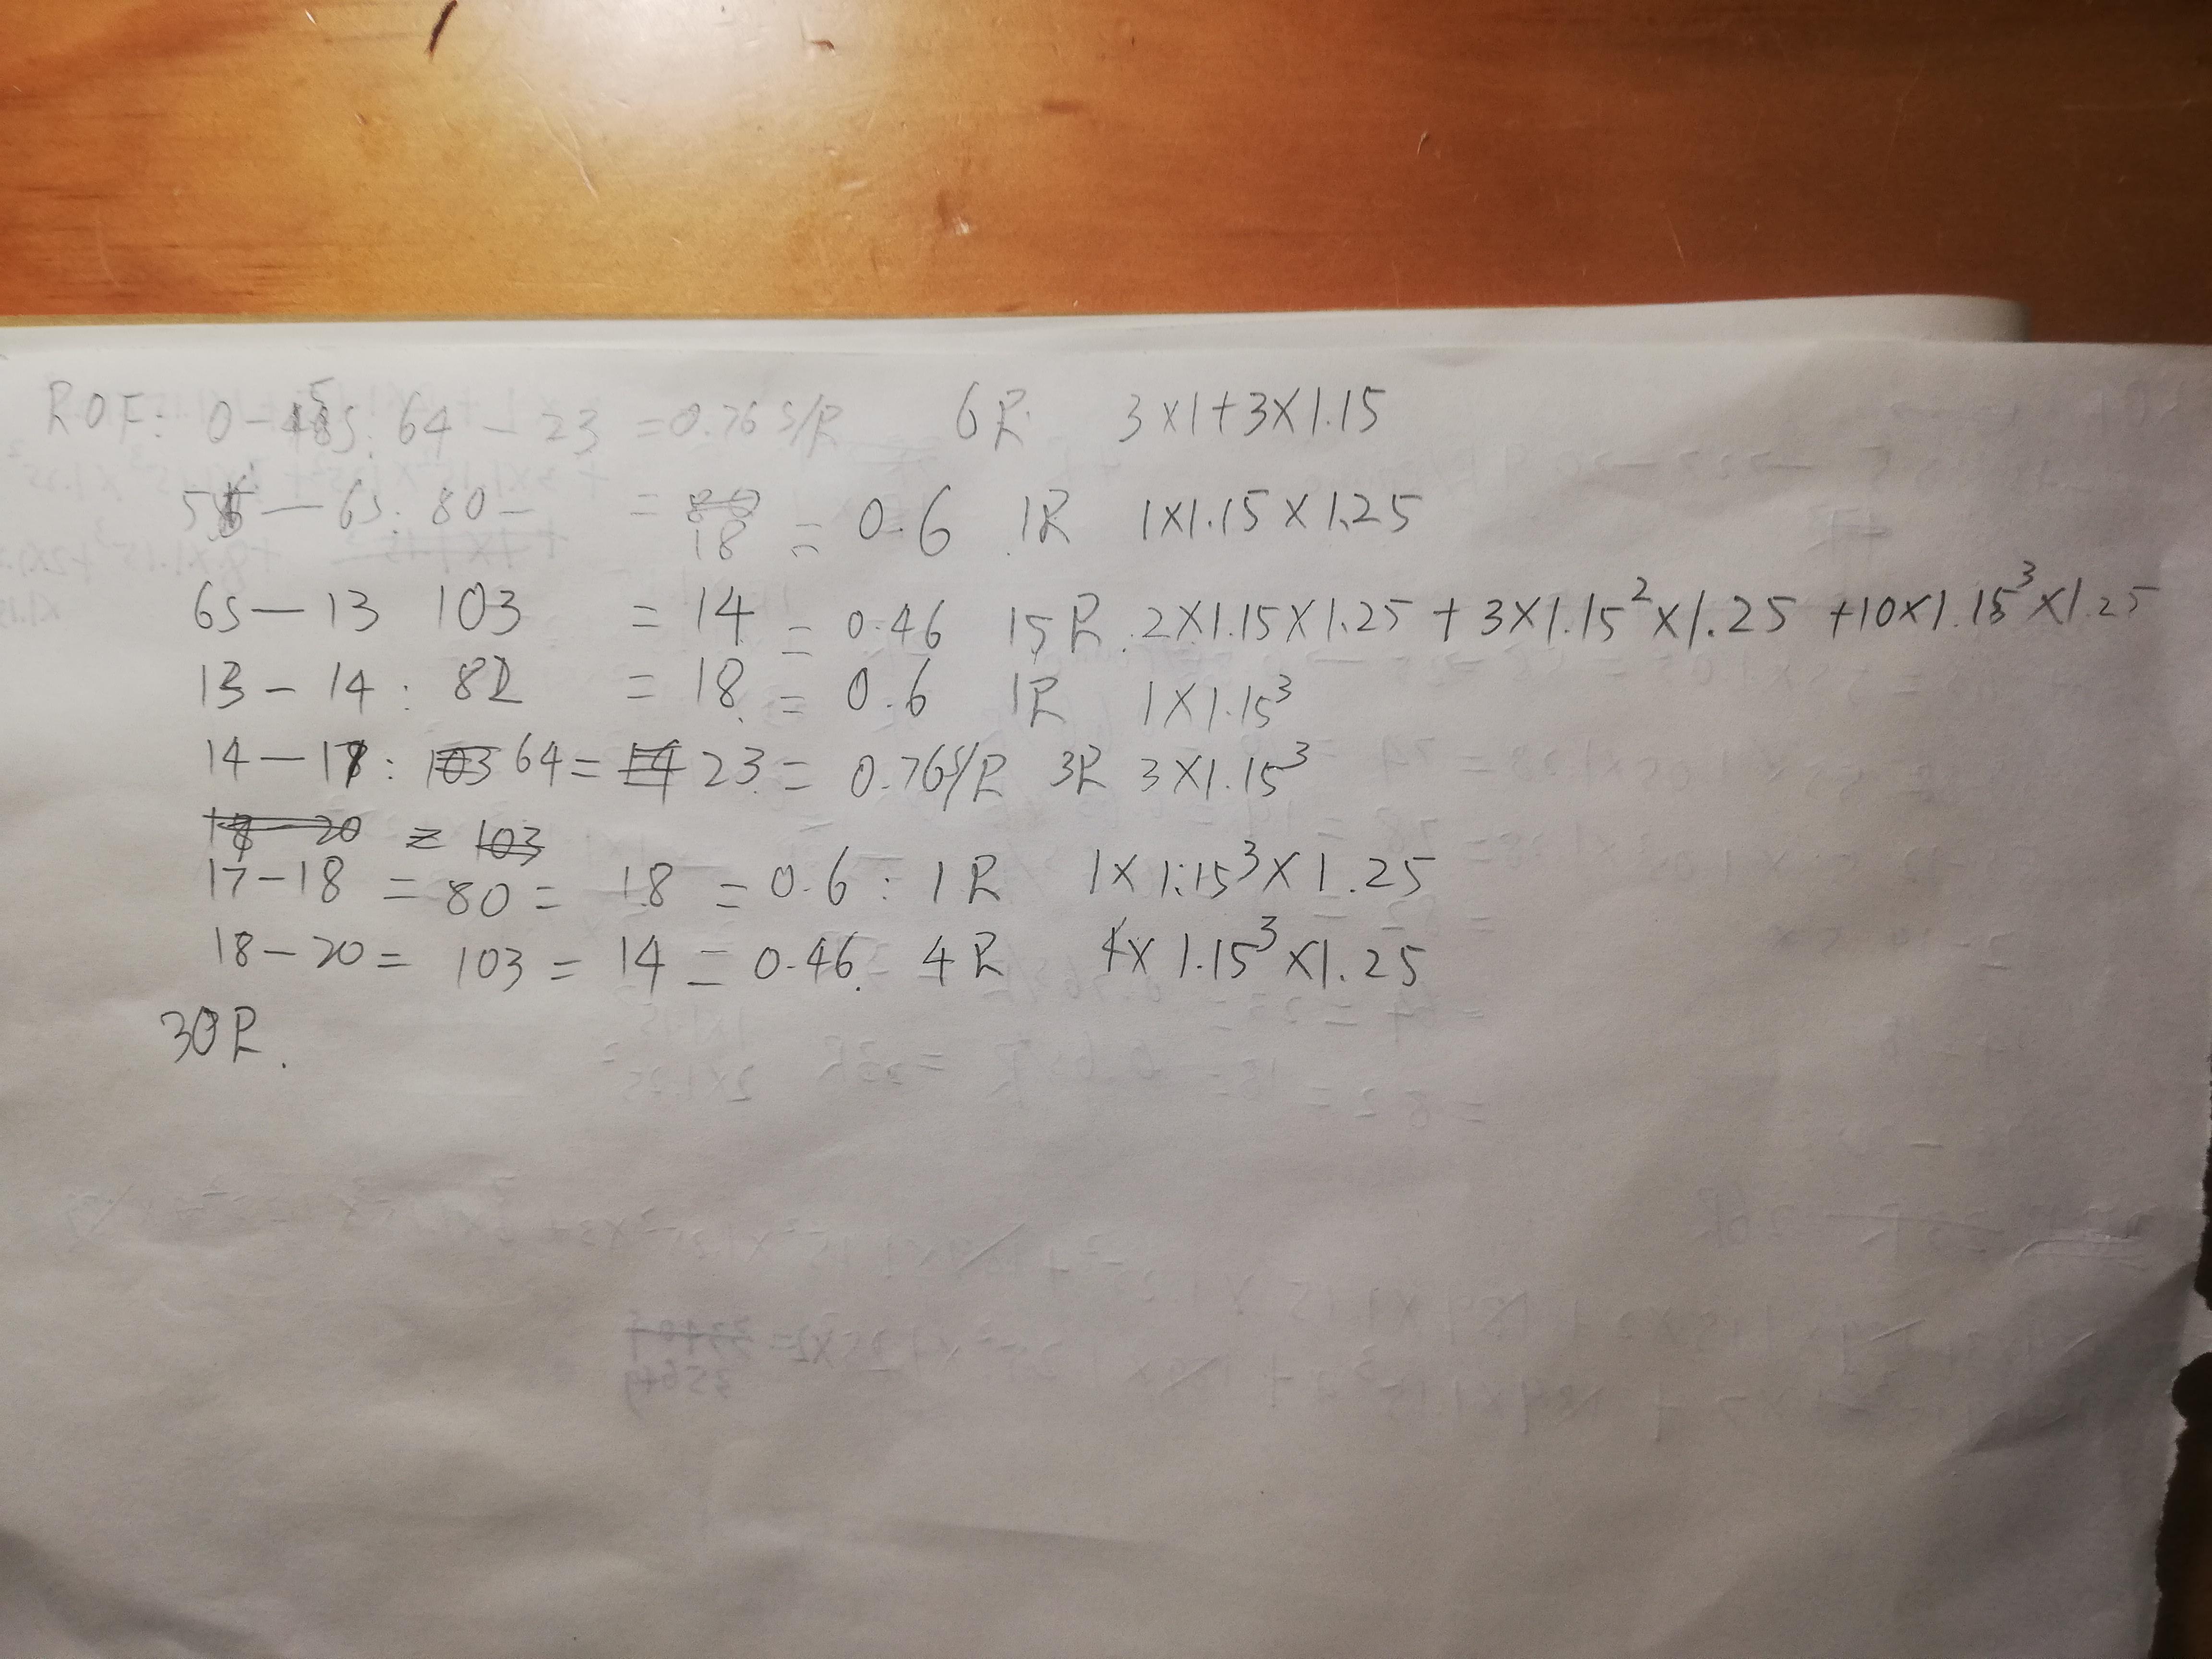 ROF: 0-5s: 64 - 23 = 0.76 s/R 6R 3×1+3×1.15
5 — 6s: 80 — = 18 = 0.6 1R 1×1.15×1.25
6s — 13 103 = 14 = 0.46 15R 2×1.15×1.25 + 3×1.15²×1.25 +10×1.15³×1.25
13 - 14 : 82 = 18 = 0.6 1R 1×1.15³
14 — 17 : 103 64 = 14 23 = 0.76s/R 3R 3×1.15³
18 - 20 = 103
17-18 = 80 = 18 = 0.6 : 1R 1×1.15³×1.25
18-20 = 103 = 14 = 0.46. 4R 4×1.15³×1.25
30R.